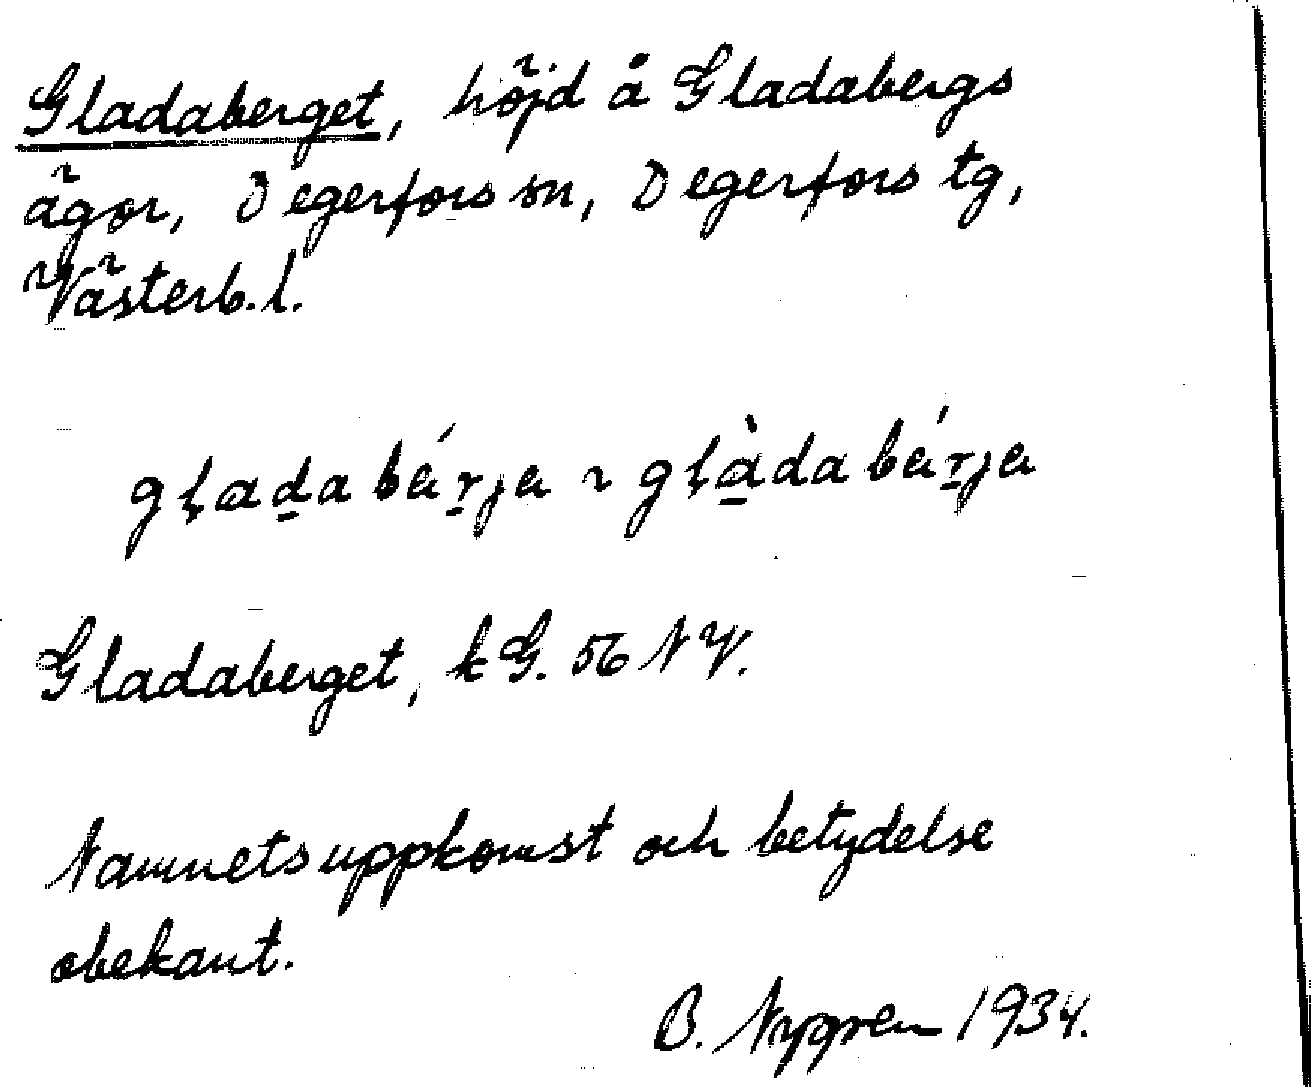 Gladaberget, höjd å Gladabergs
ägor, Degerfors sn, Degerfors tg,
Västerb. l.
gḷad̲a bár̲ja ~ gḷà̲da bár̲ja
Gladaberget, k G. 56 NV.
Namnets uppkomst och betydelse
obekant.
B. Nygren 1934.